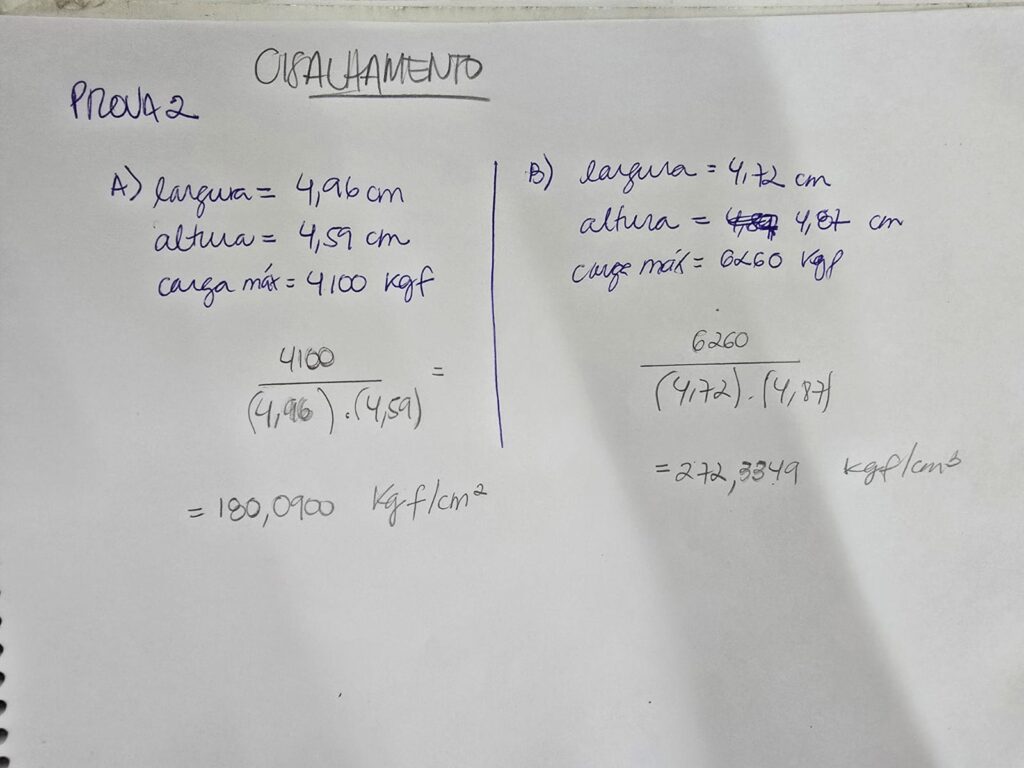 CISALHAMENTO
PROVA 2
A) largura = 4,96 cm
altura = 4,59 cm
carga máx = 4100 Kgf
4100
(4,96) . (4,59)
=
= 180,0900 Kgf/cm²
B) largura = 4,72 cm
altura = 4,87 cm
carga máx = 6260 Kgf
6260
(4,72) . (4,87)
= 272,3349 Kgf/cm³